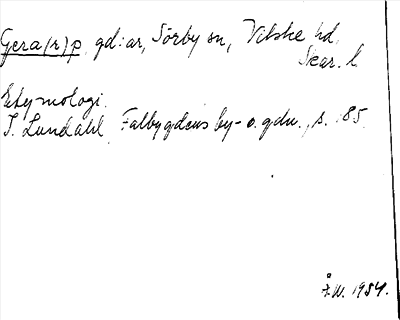 Gera(r)p, gd:ar, Sörby sn, Vilske hd.
Skar. l
Etymologi.
I. Lundahl Falbygdens by- o. gdn., s. 85.
Å.W. 1954.